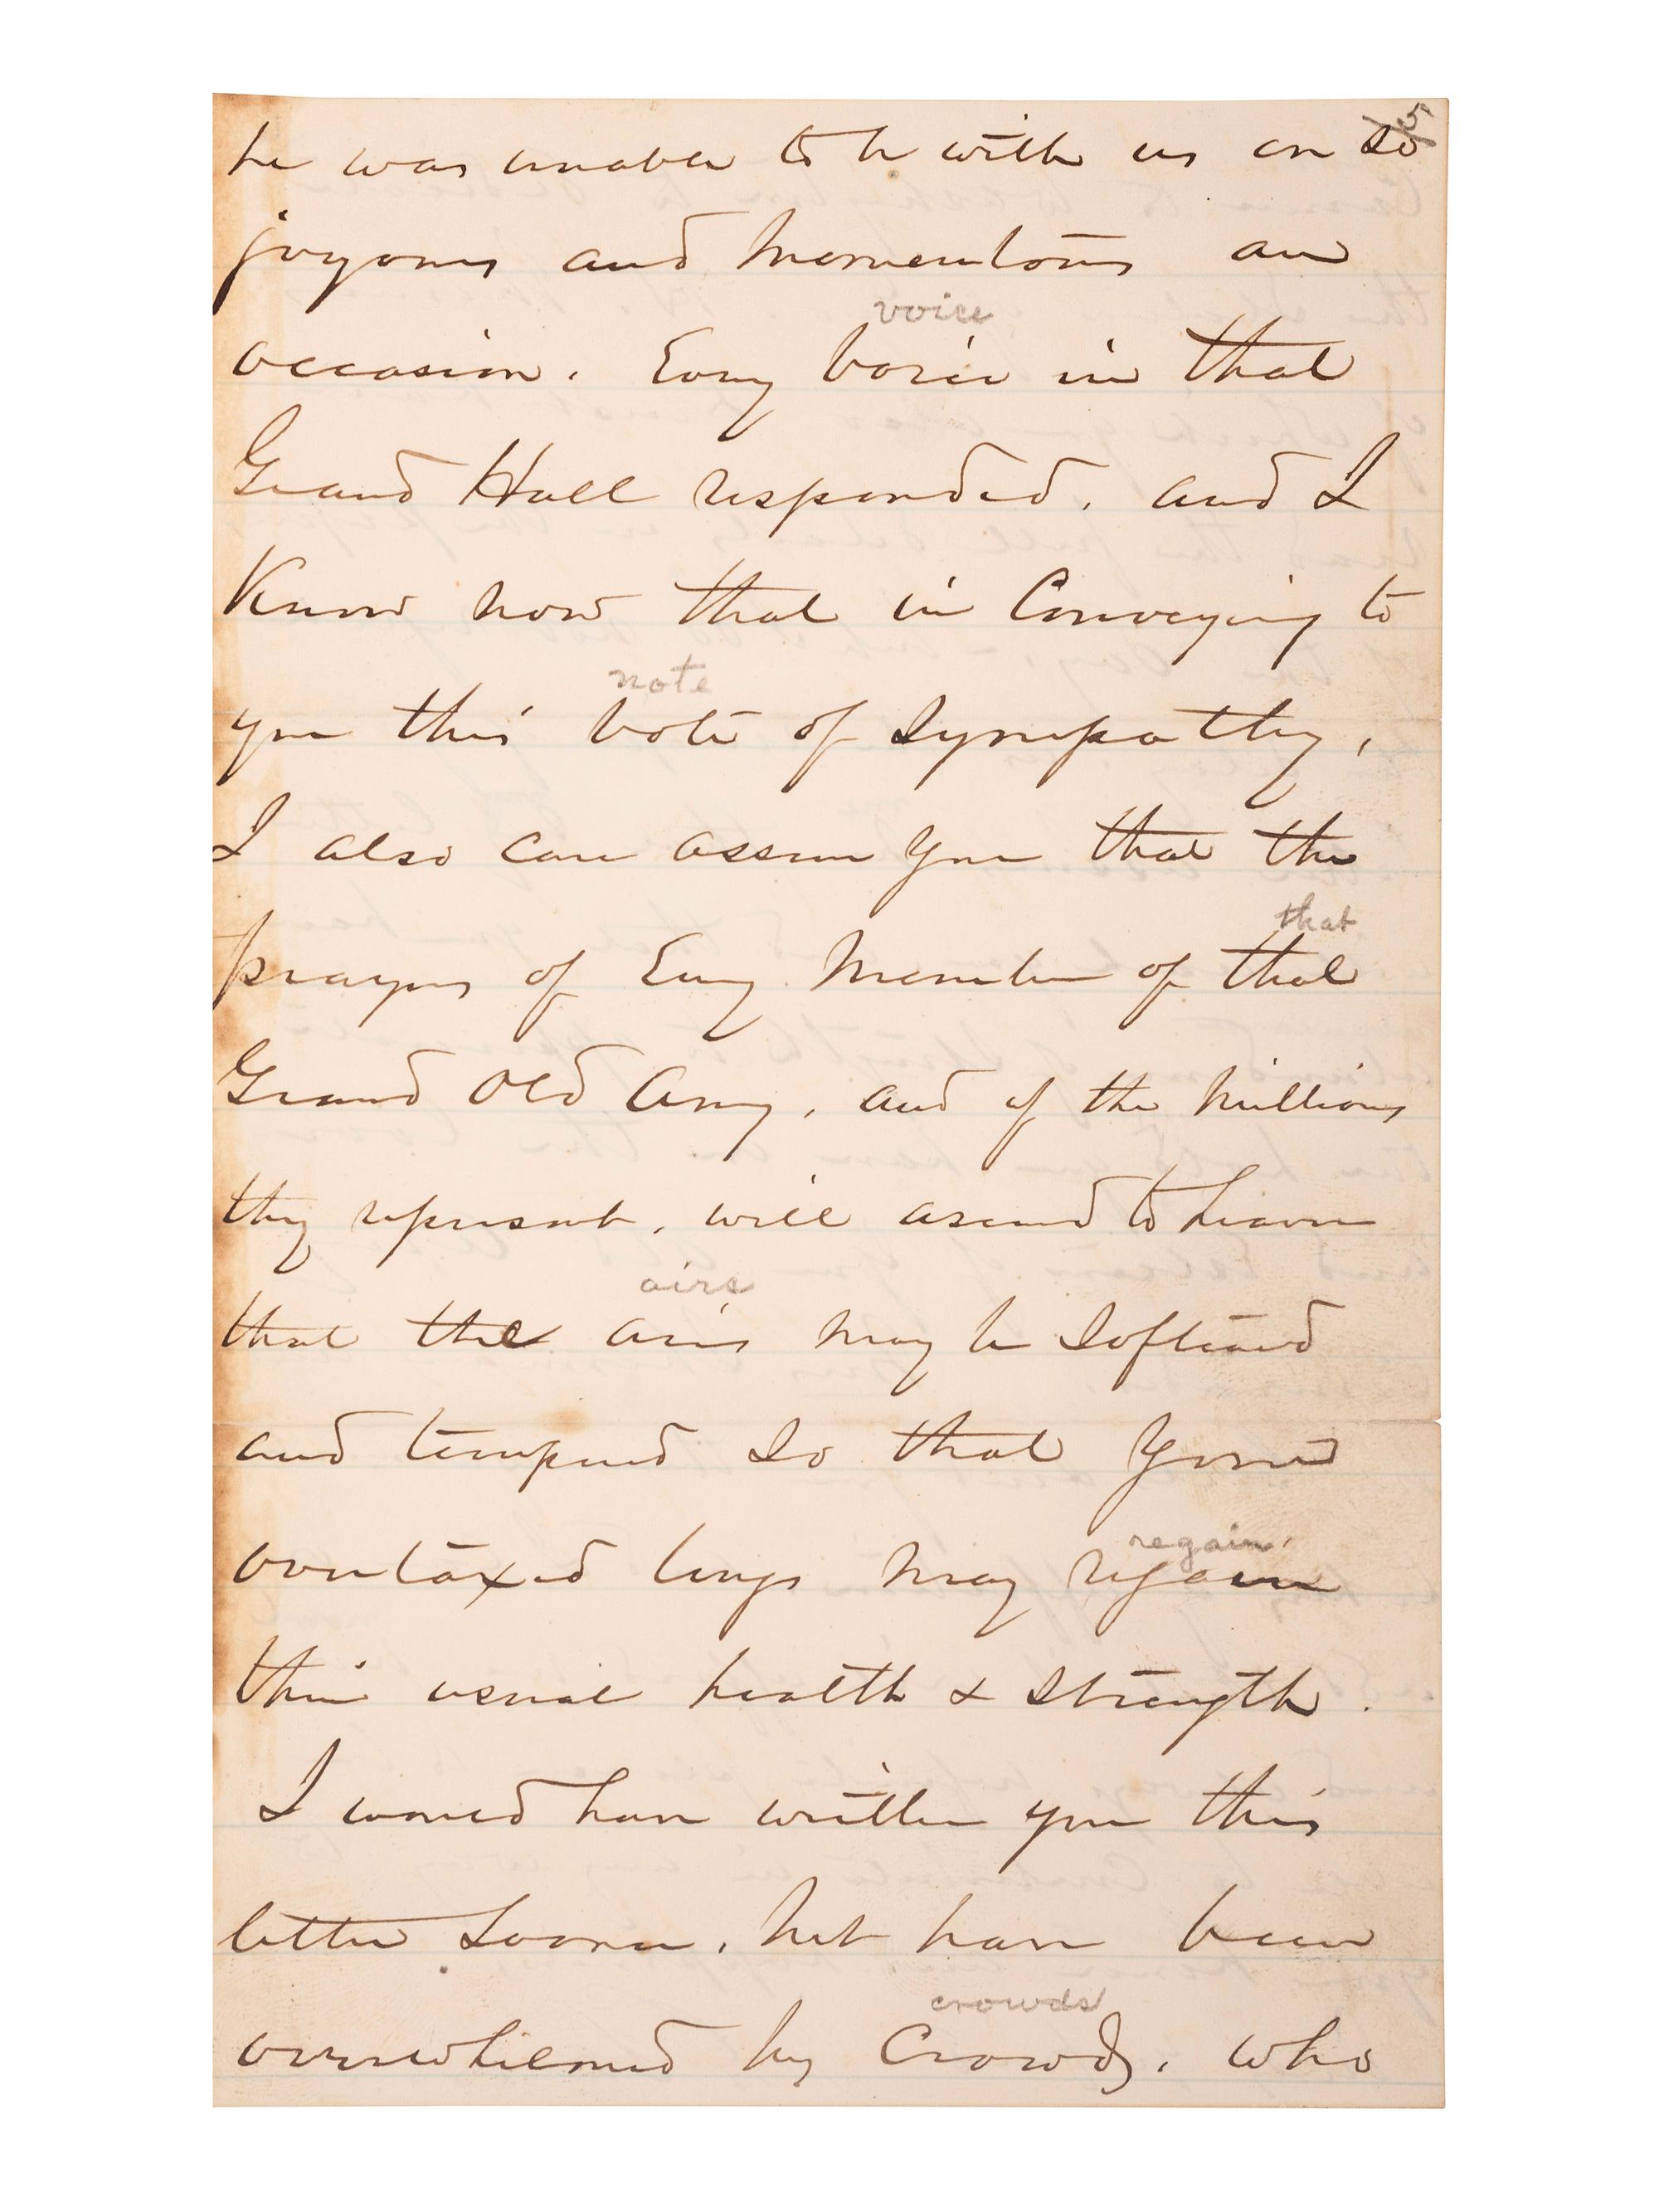 5
he was unable to be with us on so
joyous and momentous an
voice
occasion. Every voice in that
Grand Hall responded, and I
Know now that in Conveying to
note
you this vote of Sympathy,
I also can assure you that the
that
prayers of Every Member of that
Grand Old Army, and of the Millions
they represent, will ascend to heaven
airs
that the airs may be Softened
and tempered So that Your
regain
overtaxed lungs may regain
their usual health & Strength.
I would have written you this
letter Sooner, but have been
crowds
overwhelmed by Crowds, who